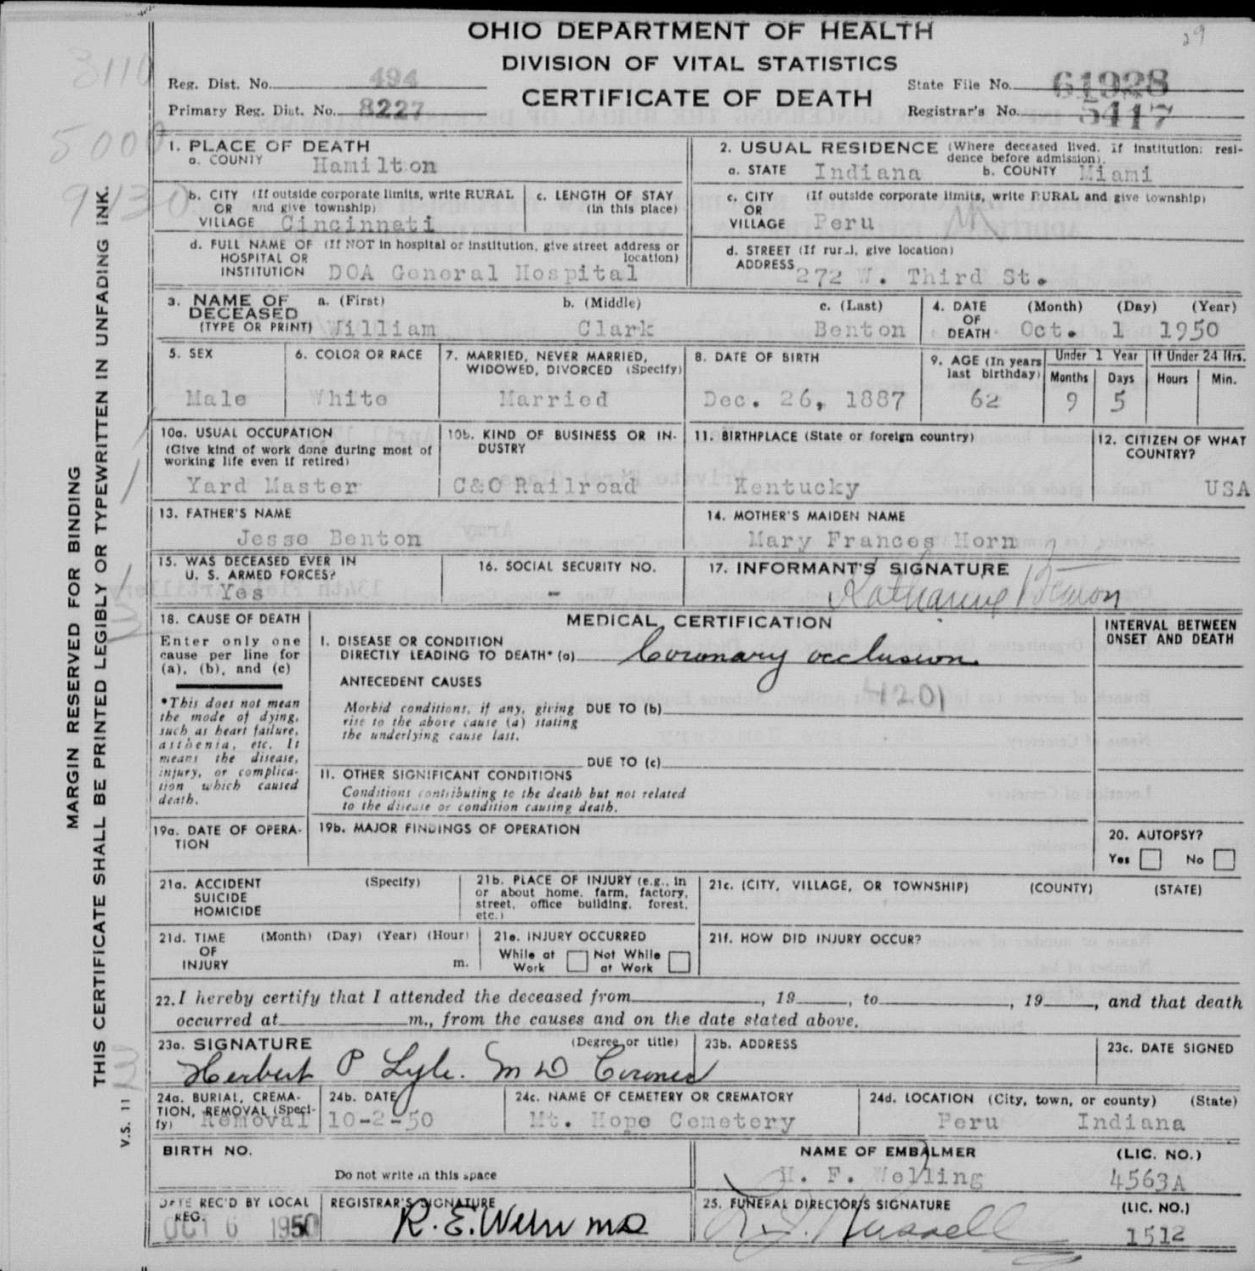 OHIO DEPARTMENT OF HEALTH
DIVISION OF VITAL STATISTICS
CERTIFICATE OF DEATH
29
3110
5000
9430
Reg. Dist. No. 494
Primary Reg. Dist. No. 8227
State File No. 61928
Registrar's No. 5417
1. PLACE OF DEATH
a. COUNTY Hamilton
b. CITY (If outside corporate limits, write RURAL
OR and give township)
VILLAGE Cincinnati
c. LENGTH OF STAY
(in this place)
d. FULL NAME OF (If NOT in hospital or institution, give street address or
HOSPITAL OR location)
INSTITUTION DOA General Hospital
2. USUAL RESIDENCE (Where deceased lived. If institution: resi-
dence before admission).
a. STATE Indiana b. COUNTY Miami
c. CITY (If outside corporate limits, write RURAL and give township)
OR
VILLAGE Peru
d. STREET (If rural, give location)
ADDRESS 272 W. Third St.
3. NAME OF DECEASED a. (First) b. (Middle) c. (Last)
(TYPE OR PRINT) William Clark Benton
4. DATE OF DEATH (Month) (Day) (Year)
Oct. 1 1950
5. SEX
Male
6. COLOR OR RACE
White
7. MARRIED, NEVER MARRIED,
WIDOWED, DIVORCED (Specify)
Married
8. DATE OF BIRTH
Dec. 26, 1887
9. AGE (In years
last birthday)
62
Under 1 Year
Months Days
9 5
If Under 24 Hrs.
Hours Min.
10a. USUAL OCCUPATION
(Give kind of work done during most of
working life even if retired)
Yard Master
10b. KIND OF BUSINESS OR IN-
DUSTRY
C&O Railroad
11. BIRTHPLACE (State or foreign country)
Kentucky
12. CITIZEN OF WHAT
COUNTRY?
USA
13. FATHER'S NAME
Jesse Benton
14. MOTHER'S MAIDEN NAME
Mary Frances Horn
15. WAS DECEASED EVER IN
U. S. ARMED FORCES?
Yes
16. SOCIAL SECURITY NO.
-
17. INFORMANT'S SIGNATURE
Katharine Benton
18. CAUSE OF DEATH
Enter only one
cause per line for
(a), (b), and (c)
*This does not mean
the mode of dying,
such as heart failure,
asthenia, etc. It
means the disease,
injury, or complica-
tion which caused
death.
MEDICAL CERTIFICATION
I. DISEASE OR CONDITION
DIRECTLY LEADING TO DEATH* (a) Coronary occlusion
ANTECEDENT CAUSES
4201
Morbid conditions, if any, giving DUE TO (b)
rise to the above cause (a) stating
the underlying cause last.
DUE TO (c)
II. OTHER SIGNIFICANT CONDITIONS
Conditions contributing to the death but not related
to the disease or condition causing death.
INTERVAL BETWEEN
ONSET AND DEATH
19a. DATE OF OPERA-
TION
19b. MAJOR FINDINGS OF OPERATION
20. AUTOPSY?
Yes No
21a. ACCIDENT (Specify)
SUICIDE
HOMICIDE
21b. PLACE OF INJURY (e.g., in
or about home, farm, factory,
street, office building, forest,
etc.)
21c. (CITY, VILLAGE, OR TOWNSHIP) (COUNTY) (STATE)
21d. TIME (Month) (Day) (Year) (Hour)
OF
INJURY m.
21e. INJURY OCCURRED
While at Work Not While at Work
21f. HOW DID INJURY OCCUR?
22. I hereby certify that I attended the deceased from , 19 , to , 19 , and that death
occurred at m., from the causes and on the date stated above.
23a. SIGNATURE (Degree or title)
Herbert P Lyle. M D Coroner
23b. ADDRESS
23c. DATE SIGNED
24a. BURIAL, CREMA-
TION, REMOVAL (Speci-
fy) Removal
24b. DATE
10-2-50
24c. NAME OF CEMETERY OR CREMATORY
Mt. Hope Cemetery
24d. LOCATION (City, town, or county) (State)
Peru Indiana
BIRTH NO.
Do not write in this space
NAME OF EMBALMER (LIC. NO.)
H. F. Welling 4563A
DATE REC'D BY LOCAL
REG.
OCT 6 1950
REGISTRAR'S SIGNATURE
25. FUNERAL DIRECTOR'S SIGNATURE (LIC. NO.)
Russell 1512
MARGIN RESERVED FOR BINDING
THIS CERTIFICATE SHALL BE PRINTED LEGIBLY OR TYPEWRITTEN IN UNFADING INK.
V.S. 11